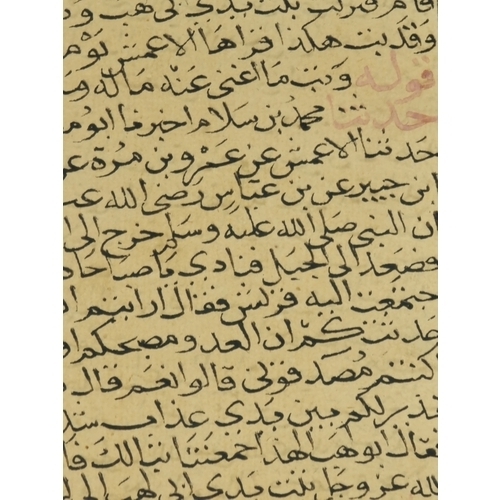 اقام فنزلت تبت يدى ابى لهب و
وقد تب هكذا اقراها الاعمش يوم
قوله وتب ما اغنى عنه ماله وم
حدثنا محمد بن سلام اخبرنا ابو م
حدثنا الاعمش عن عمرو بن مرة ع
ابن جبير عن بن عباس رضى الله ع
ان النبى صلى الله عليه وسلم خرج الى ا
فصعد الى الجبل فنادى يا صباحا
اجتمعت اليه قريش فقال ارايتم ا
حدثتكم ان العدو مصبحكم او
اكنتم مصدقونى قالوا نعم قال
نذير لكم بين يدى عذاب شد
فقال ابو لهب الهذا جمعتنا تبا لك فا
الله عز وجل تبت يدى ابى لهب الى